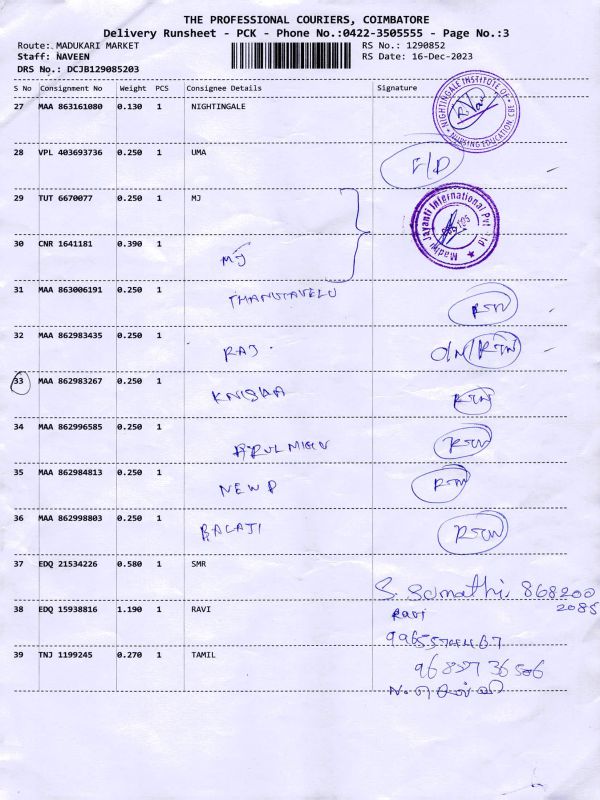 THE PROFESSIONAL COURIERS, COIMBATORE
Delivery Runsheet - PCK - Phone No.:0422-3505555 - Page No.:3
Route: MADUKARI MARKET RS No.: 1290852
Staff: NAVEEN RS Date: 16-Dec-2023
DRS No.: DCJB129085203
S No Consignment No Weight PCS Consignee Details Signature
27 MAA 863161080 0.130 1 NIGHTINGALE
NIGHTINGALE INSTITUTE OF NURSING EDUCATION CBE
28 VPL 403693736 0.250 1 UMA
29 TUT 6670077 0.250 1 MJ
Madhu Jayanti International Pvt Ltd
30 CNR 1641181 0.390 1 MJ
31 MAA 863006191 0.250 1 RTN
32 MAA 862983435 0.250 1 RAJ. RTN
33 MAA 862983267 0.250 1 RTN
34 MAA 862996585 0.250 1 RTN
35 MAA 862984813 0.250 1 NEW RTN
36 MAA 862998803 0.250 1 BALAJI RTN
37 EDQ 21534226 0.580 1 SMR
S. Sumathi, 868200
2085
38 EDQ 15938816 1.190 1 RAVI Ravi
39 TNJ 1199245 0.270 1 TAMIL